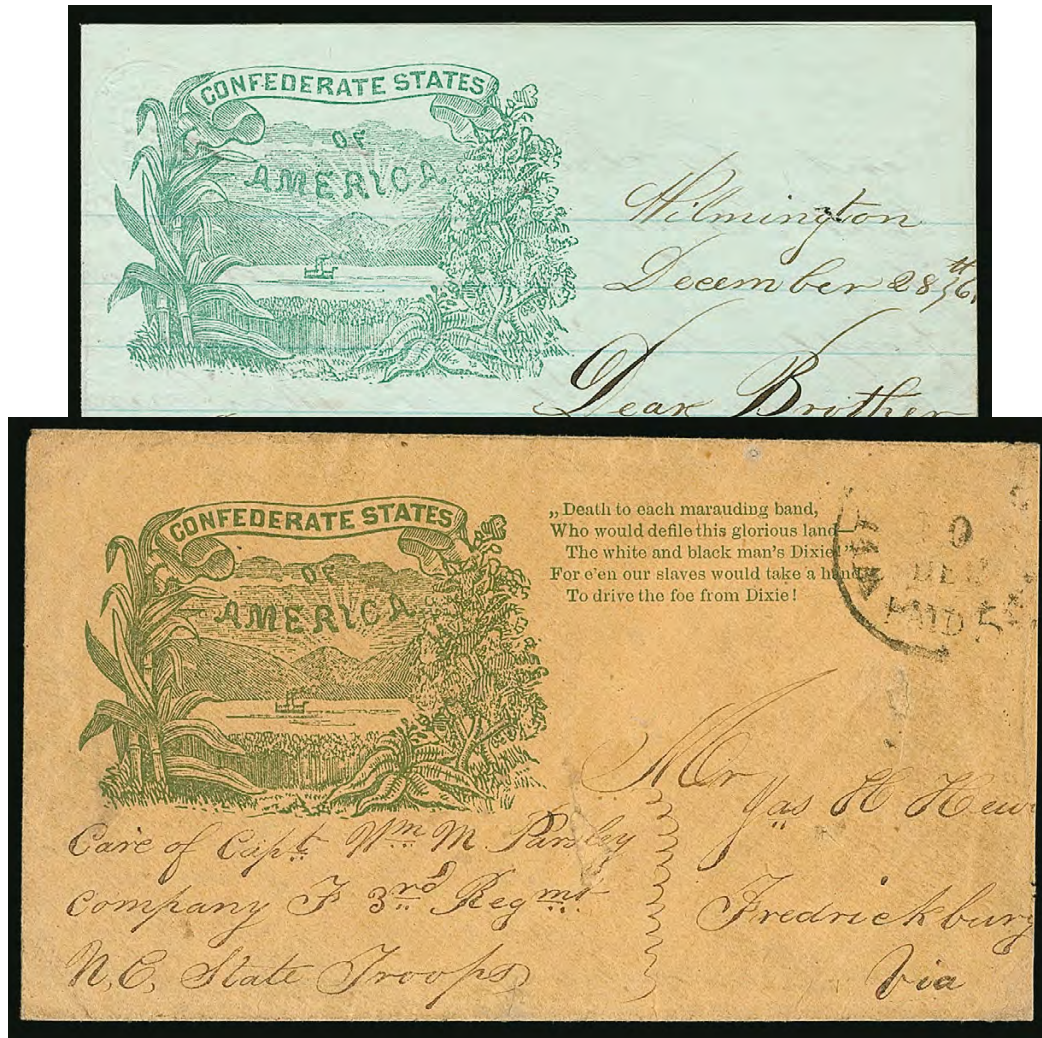 CONFEDERATE STATES
OF
AMERICA
Wilmington
December 28th
Dear Brother
CONFEDERATE STATES
OF
AMERICA
„Death to each marauding band,
Who would defile this glorious land
The white and black man's Dixie!
For e'en our slaves would take a hand
To drive the foe from Dixie!
DEC
PAID 5
Mr
Jas H
Care of Capt Wm M Parsley
company F 3rd Regmt
N.C. State Troops
Fredrickburg
Via